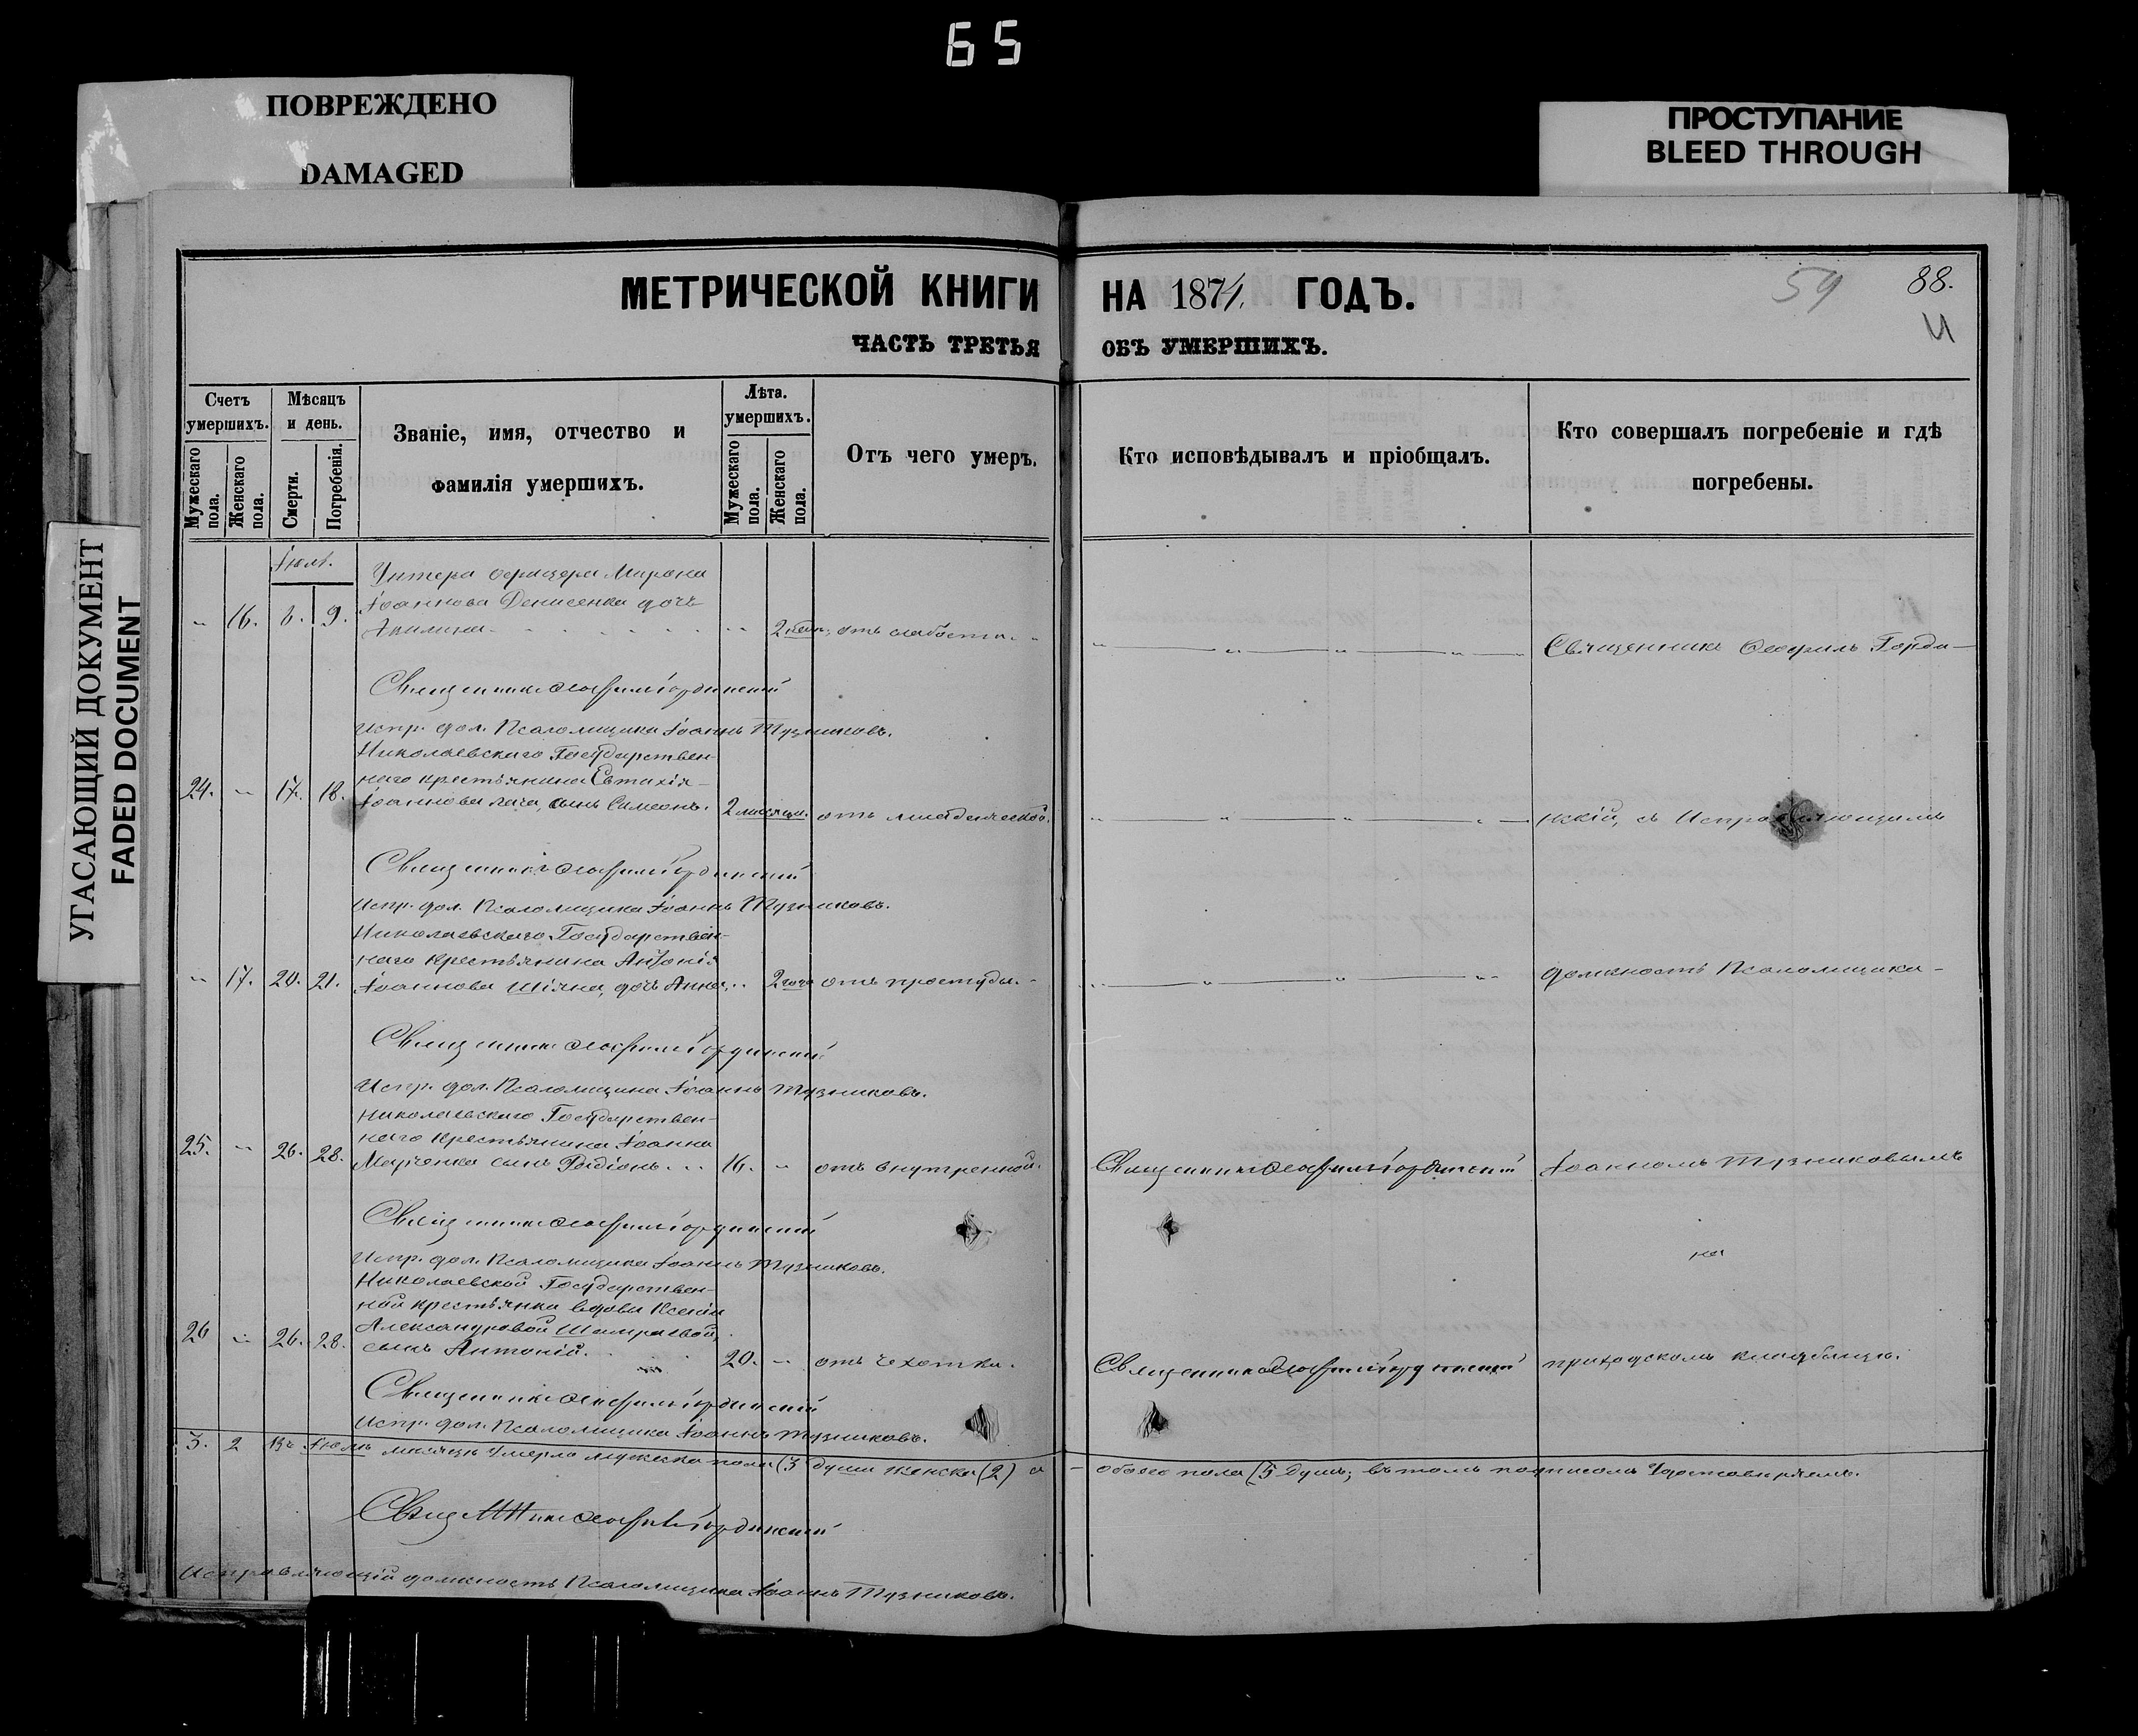 65
ПОВРЕЖДЕНО
DAMAGED
ПРОСТУПАНИЕ
BLEED THROUGH
УГАСАЮЩИЙ ДОКУМЕНТ
FADED DOCUMENT
МЕТРИЧЕСКОЙ КНИГИ НА 1874. ГОДЪ.
59 88.
ЧАСТЬ ТРЕТЬЯ ОБЪ УМЕРШИХЪ.
Счетъ умершихъ.
Мужескаго пола.
Женскаго пола.
Мѣсяцъ и день.
Смерти.
Погребенія.
Званіе, имя, отчество и
фамилія умершихъ.
Лѣта умершихъ.
Мужескаго пола.
Женскаго пола.
Отъ чего умеръ.
Кто исповѣдывалъ и пріобщалъ.
Кто совершалъ погребеніе и гдѣ
погребены.
Унтера офицера Мирона
16. 9. Іоаннова Денисенка дочь
2 отъ слабости.
Священникъ Ѳеофилъ Горди-
Священникъ Ѳеофилъ Гординскій
Испр. дол. Псаломщика Іоаннъ Тузниковъ.
Николаевскаго Государствен-
наго крестьянина Евтихія
24. 17. 18. Іоаннова сынъ Симеонъ. 2 мѣсяца. отъ младенческой.
нскій, съ Исправляющимъ
Священникъ Ѳеофилъ Гординскій
Испр. дол. Псаломщика Іоаннъ Тузниковъ.
Николаевскаго Государствен-
наго крестьянина Антонія
17. 20. 21. Іоаннова дочь Анна 2 года отъ простуды.
должность Псаломщика
Священникъ Ѳеофилъ Гординскій
Испр. дол. Псаломщика Іоаннъ Тузниковъ.
Николаевскаго Государствен-
наго крестьянина Іоанна
25. 26. 28. Марченка сынъ Родіонъ. 16. отъ внутренной.
Священникъ Ѳеофилъ Гординскій
Іоанномъ Тузниковымъ
Священникъ Ѳеофилъ Гординскій
на
Испр. дол. Псаломщика Іоаннъ Тузниковъ.
Николаевской Государствен-
ной крестьянки вдовы Ксеніи
Александровой Шамраевой,
26 26. 28. сынъ Антоній. 20. отъ чехотки.
Священникъ Ѳеофилъ Гординскій
приходскомъ кладбищѣ.
Священникъ Ѳеофилъ Гординскій
Испр. дол. Псаломщика Іоаннъ Тузниковъ.
3. 2 Въ Іюлѣ мѣсяцѣ умерло мужеска пола (3 души женска (2) а обоего пола (5 душъ; въ томъ подписомъ Удостовѣряемъ.
Священникъ Ѳеофилъ Гординскій
Исправляющій должность Псаломщика Іоаннъ Тузниковъ.